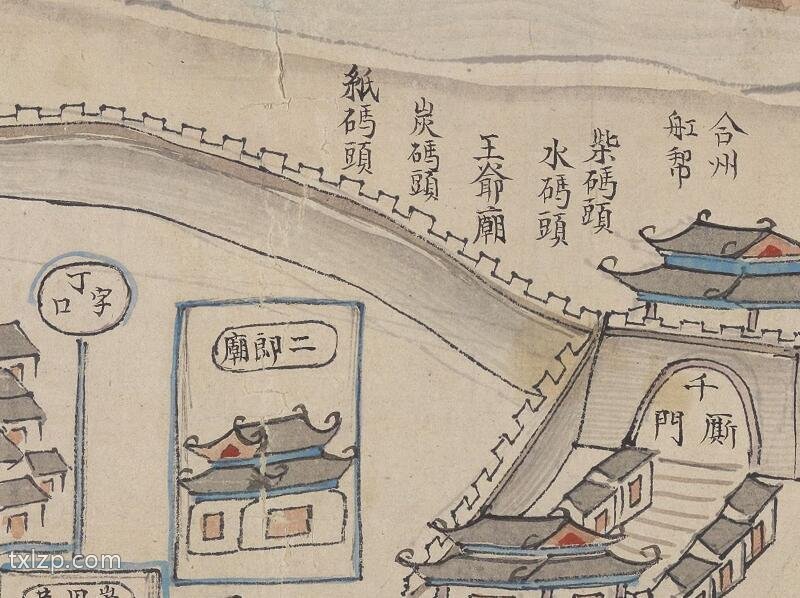 合州
舡幇
柴碼頭
水碼頭
王爺廟
炭碼頭
紙碼頭
千厮門
二郎廟
丁字口
txlzp.com